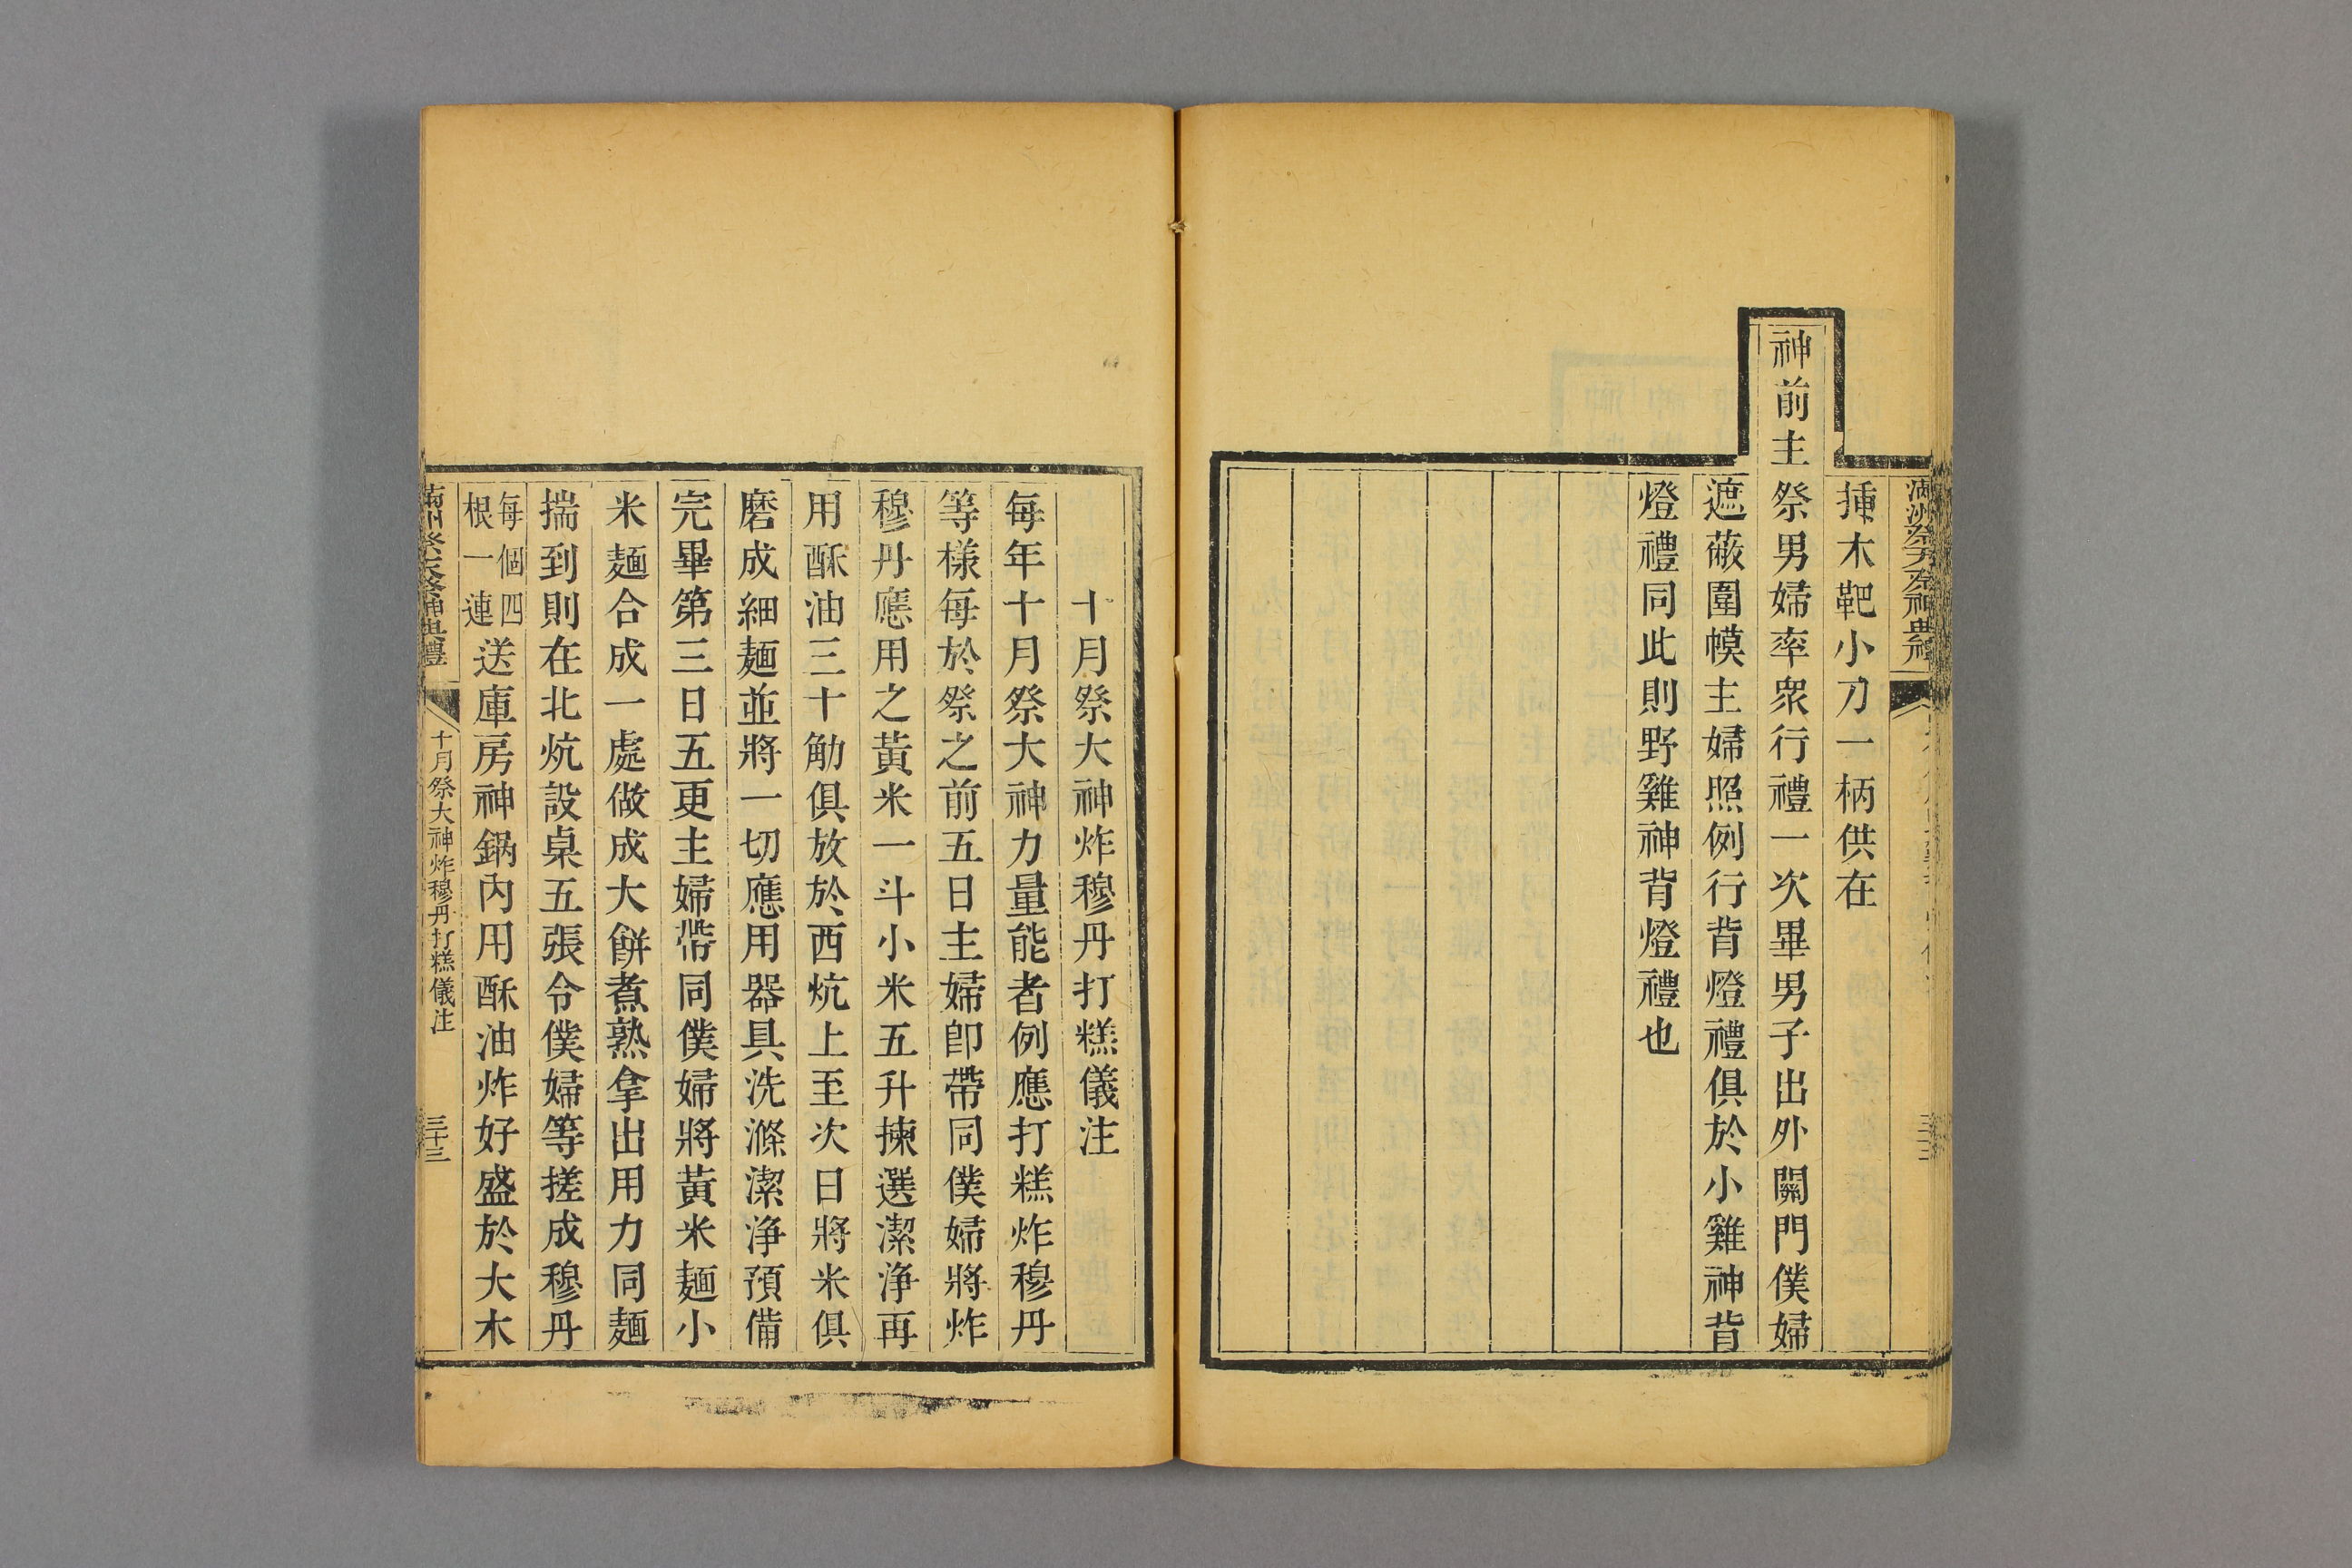 揷木靶小刀一柄供在
神前主祭男婦率衆行禮一次畢男子出外關門僕婦
遮蔽圍幙主婦照例行背燈禮俱於小雞神背
燈禮同此則野雞神背燈禮也
十月祭大神炸穆丹打糕儀注
每年十月祭大神力量能者例應打糕炸穆丹
等樣每於祭之前五日主婦卽帶同僕婦將炸
穆丹應用之黃米一斗小米五升揀選潔淨再
用酥油三十觔俱放於西炕上至次日將米俱
磨成細麵並將一切應用器具洗滌潔淨預備
完畢第三日五更主婦帶同僕婦將黃米麵小
米麵合成一處做成大餅煮熟拿出用力同麵
揣到則在北炕設桌五張令僕婦等搓成穆丹
每個四
根一連
送庫房神鍋內用酥油炸好盛於大木
滿洲祭天祭神典禮
十月祭大神炸穆丹打糕儀注
三十三